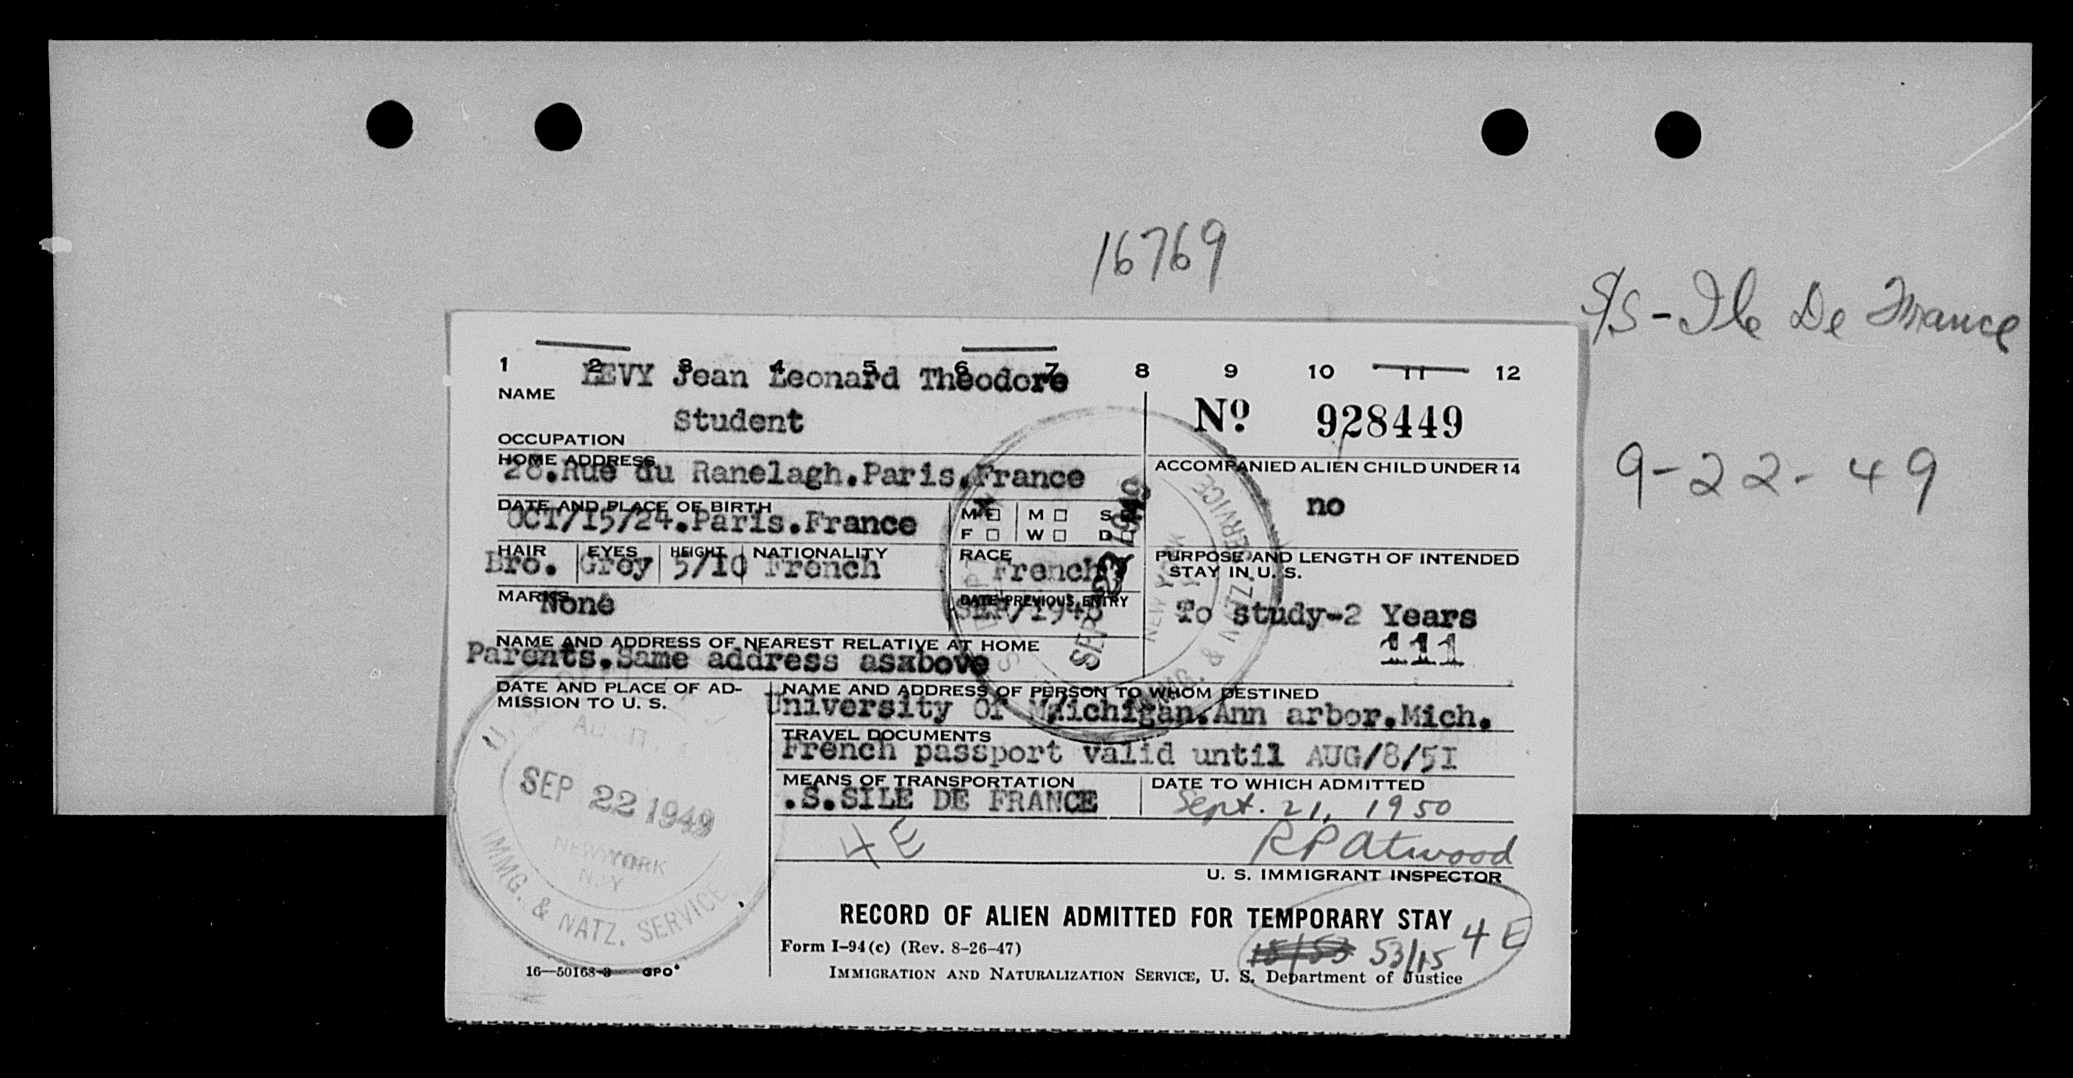 16769
S/S - Ile De France
9-22-49
1 2 3 4 5 6 7 8 9 10 11 12
NAME LEVY Jean Leonard Theodore
Nº 928449
OCCUPATION Student
HOME ADDRESS 28.Rue du Ranelagh.Paris.France
ACCOMPANIED ALIEN CHILD UNDER 14
no
DATE AND PLACE OF BIRTH OCT/15/24.Paris.France
M X M S
F W D
HAIR Bro. EYES Grey HEIGHT 5/10 NATIONALITY French RACE French
PURPOSE AND LENGTH OF INTENDED
STAY IN U. S.
To study-2 Years
111
MARKS None
DATE PREVIOUS ENTRY
NAME AND ADDRESS OF NEAREST RELATIVE AT HOME
Parents.Same address asxbove
DATE AND PLACE OF AD-
MISSION TO U. S.
NAME AND ADDRESS OF PERSON TO WHOM DESTINED
University Of Maichigan.Ann arbor.Mich.
TRAVEL DOCUMENTS
French passport valid until AUG/8/51
MEANS OF TRANSPORTATION
.S.SILE DE FRANCE
DATE TO WHICH ADMITTED
Sept. 21, 1950
4E
R P Atwood
U. S. IMMIGRANT INSPECTOR
SEP 22 1949
NEW YORK
N.Y
IMMG. & NATZ. SERVICE
RECORD OF ALIEN ADMITTED FOR TEMPORARY STAY
Form I-94(c) (Rev. 8-26-47)
15/53 53/15 4E
16—50168-3 GPO
IMMIGRATION AND NATURALIZATION SERVICE, U. S. Department of Justice